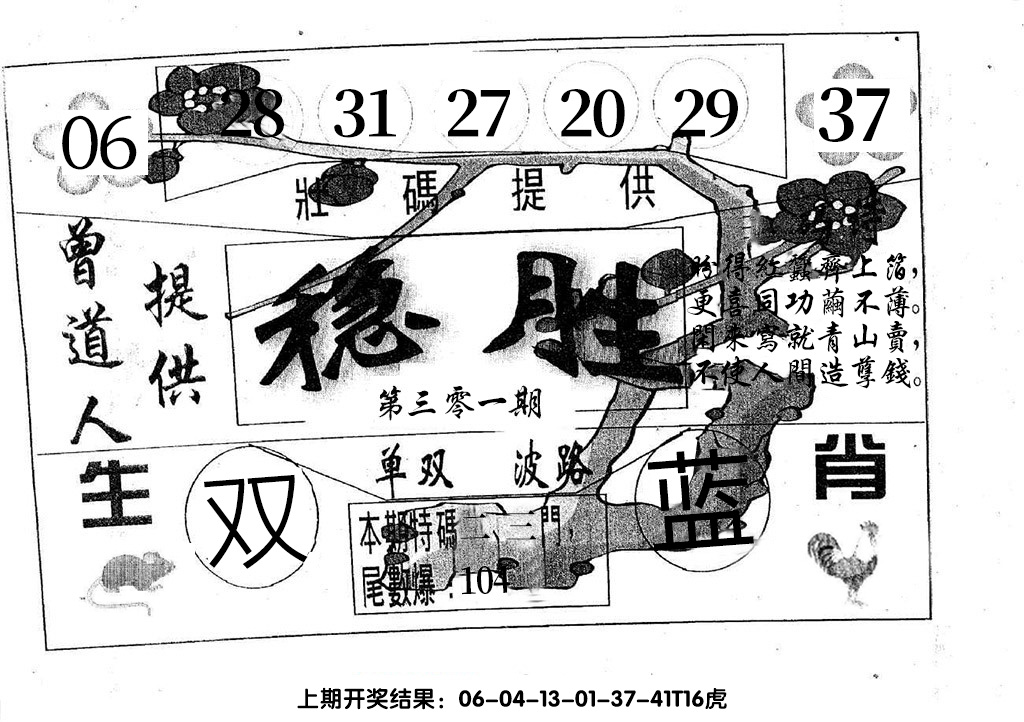 06 28 31 27 20 29 37
壯碼提供
特
曾道人
提供
稳胜
第三零一期
盼得红蠶齊上箔，
更喜同功繭不薄。
閑來寫就青山賣，
不使人間造孽錢。
单双 波路
生肖
双
蓝
本期特碼二、三門，
尾數爆：104
上期开奖结果：06-04-13-01-37-41T16虎